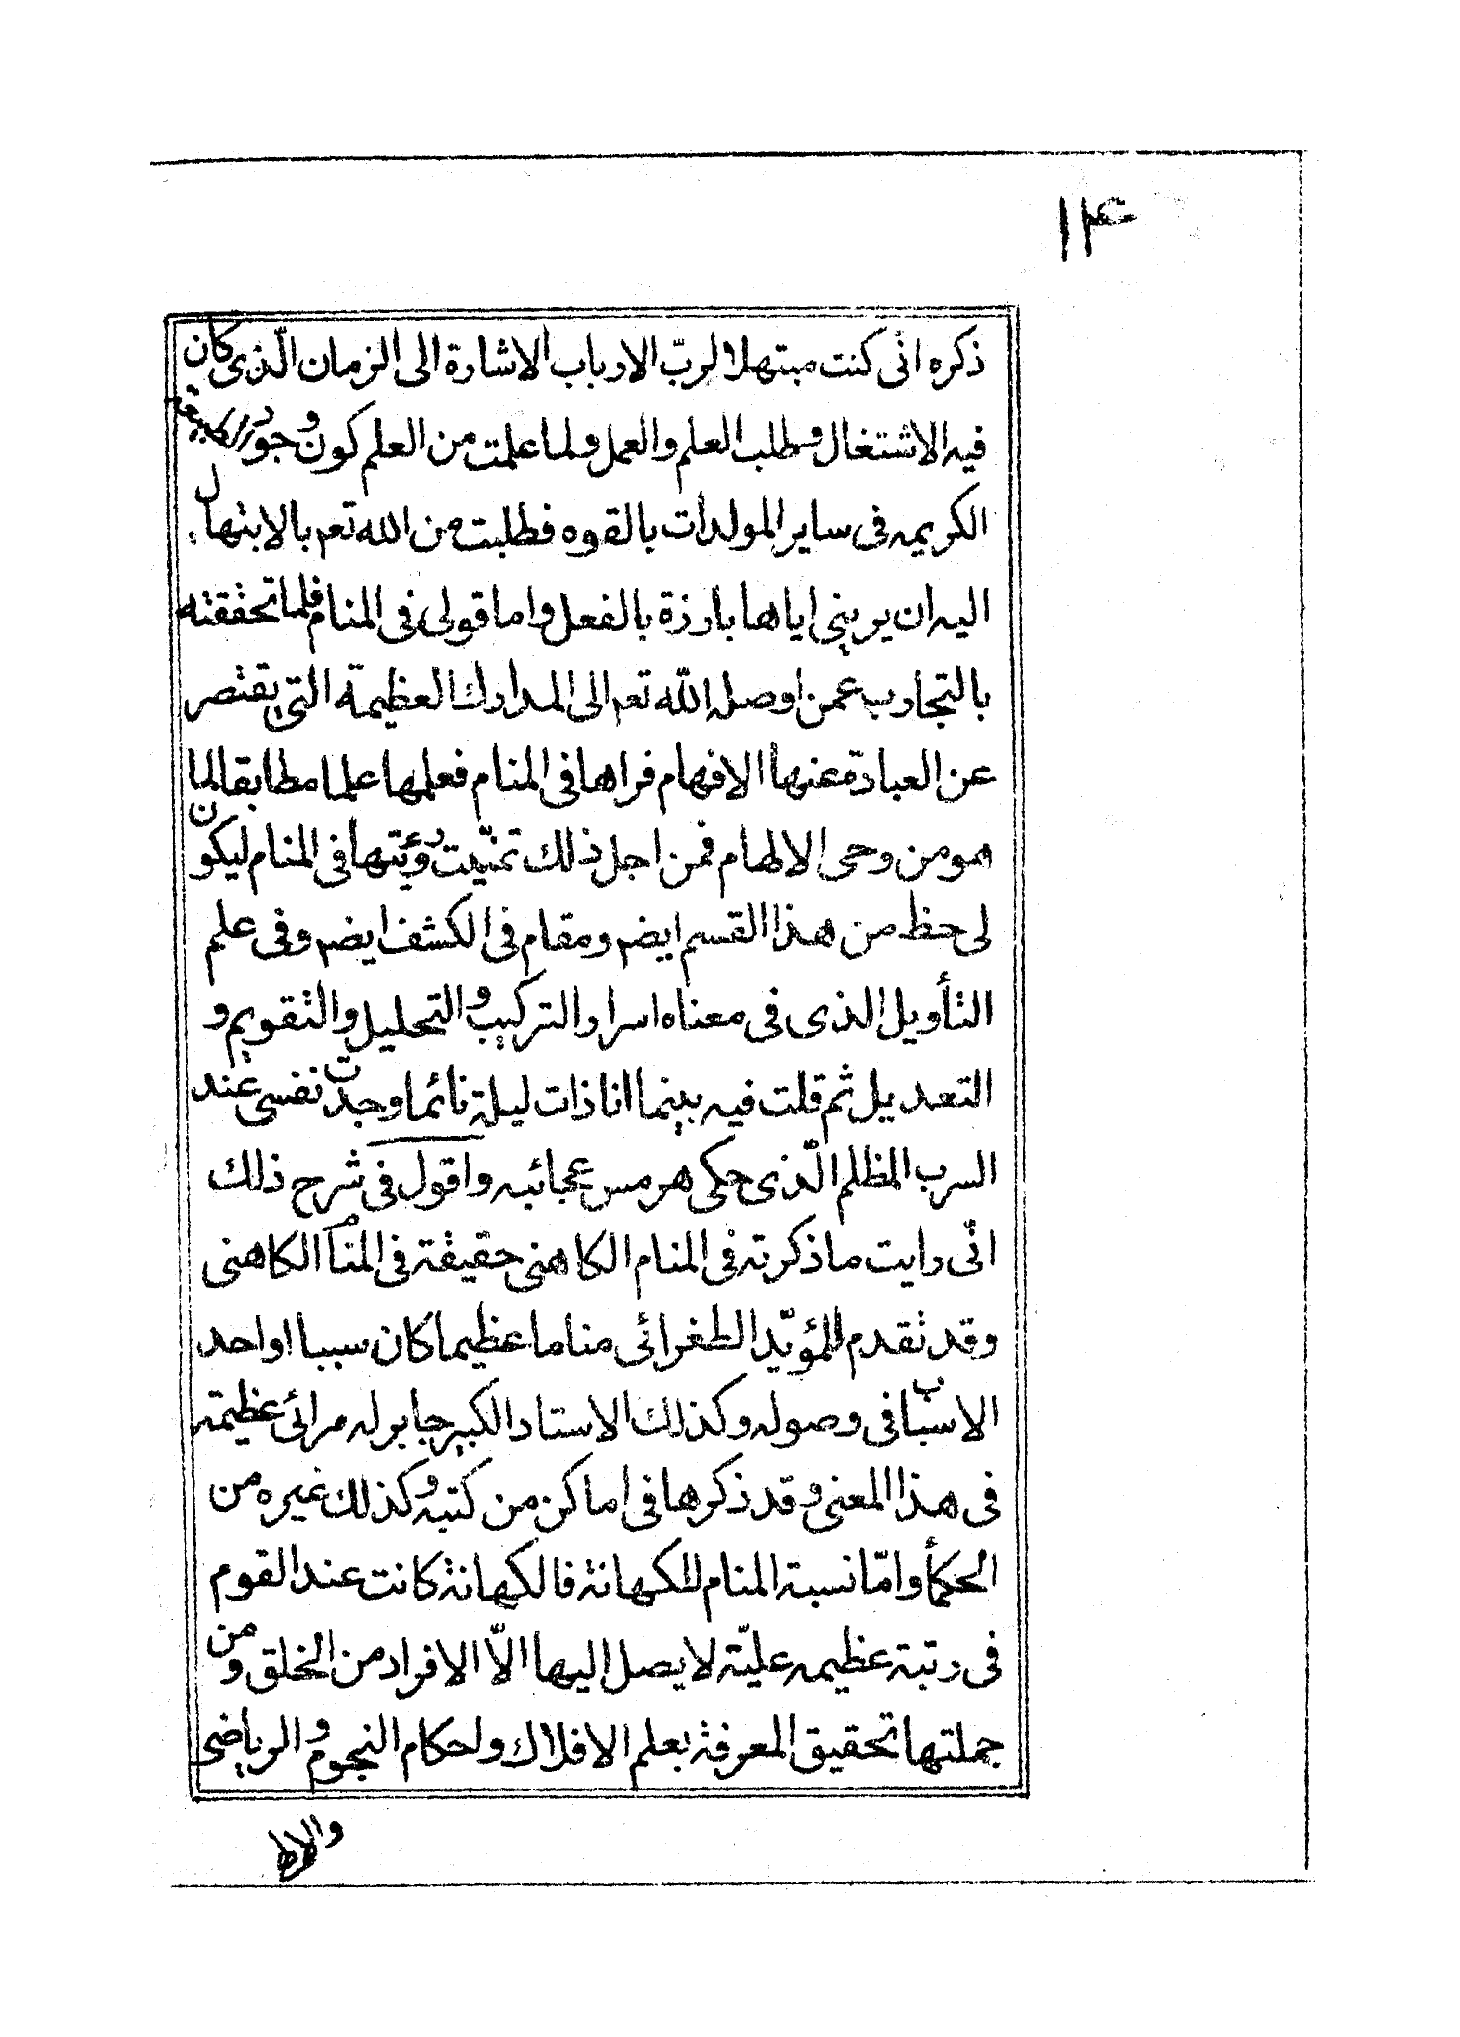 ١۴
ذكره انّى كنت مبتهلا لربّ الارباب الاشارة الى الزمان الّذى كان
فيه الاشتغال وطلب العلم والعمل ولما علمت من العلم كون وجود
الكريمه فى ساير المولدات بالقوه فطلبت من الله تعم بالابتهال
اليه ان يرينى اياها بارزة بالفعل واما قولى فى المنام فلما تحققته
بالتجارب عمن اوصله اللّه تعم الى المدارك العظيمة التى يقتصر
عن العبادة عنها الافهام فراها فى المنام فعلمها علما مطابقا لما
هو من وحى الالهام فمن اجل ذلك تمنّيت رؤيتها فى المنام ليكون
لى حظ من هذا القسم ايضم ومقام فى الكشف ايضم وفى علم
التأويل الذى فى معناه اسرار التركيب والتحليل والتقويم و
التعديل ثم قلت فيه بينما انا ذات ليلة نائما وجدت نفسى عند
السرب المظلم الّذى حكى هرمس عجائبه واقول فى شرح ذلك
انّى رايت ما ذكرته فى المنام الكاهنى حقيقة فى المنام الكاهنى
وقد تقدم للمؤيّد الطغرائى مناما عظيما كان سببا او احد
الاسباب فى وصوله وكذلك الاستاد الكبير جابر له مرائى عظيمة
فى هذا المعنى وقد ذكرها فى اماكن من كتبه وكذلك غيره من
الحكمأ وامّا نسبة المنام للكهانة فالكهانة كانت عند القوم
فى رتبة عظيمه عليّة لا يصل اليها الّا الافراد من الخلق ومن
جملتها تحقيق المعرفة بعلم الافلاك واحكام النجوم والرياضى